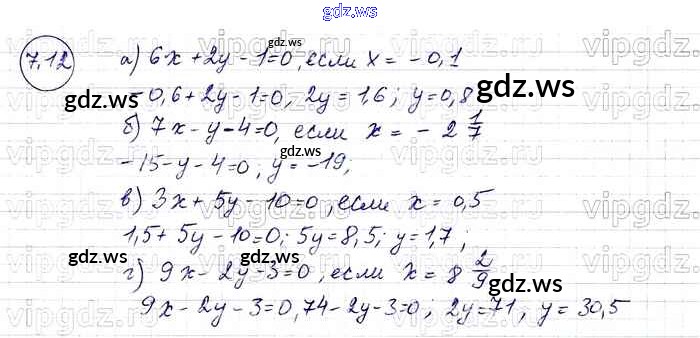 gdz.ws
7.12
а) 6x + 2y - 1 = 0, если x = - 0,1
- 0,6 + 2y - 1 = 0, 2y = 1,6; y = 0,8
б) 7x - y - 4 = 0, если x = - 2 1/7
- 15 - y - 4 = 0; y = - 19;
в) 3x + 5y - 10 = 0, если x = 0,5
1,5 + 5y - 10 = 0; 5y = 8,5; y = 1,7;
г) 9x - 2y - 3 = 0, если x = 8 2/9
9x - 2y - 3 = 0, 74 - 2y - 3 = 0; 2y = 71, y = 30,5